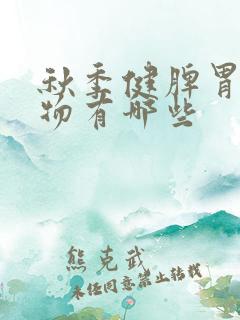 秋季健脾胃
物有哪些
熊克武
未经同意禁止转载